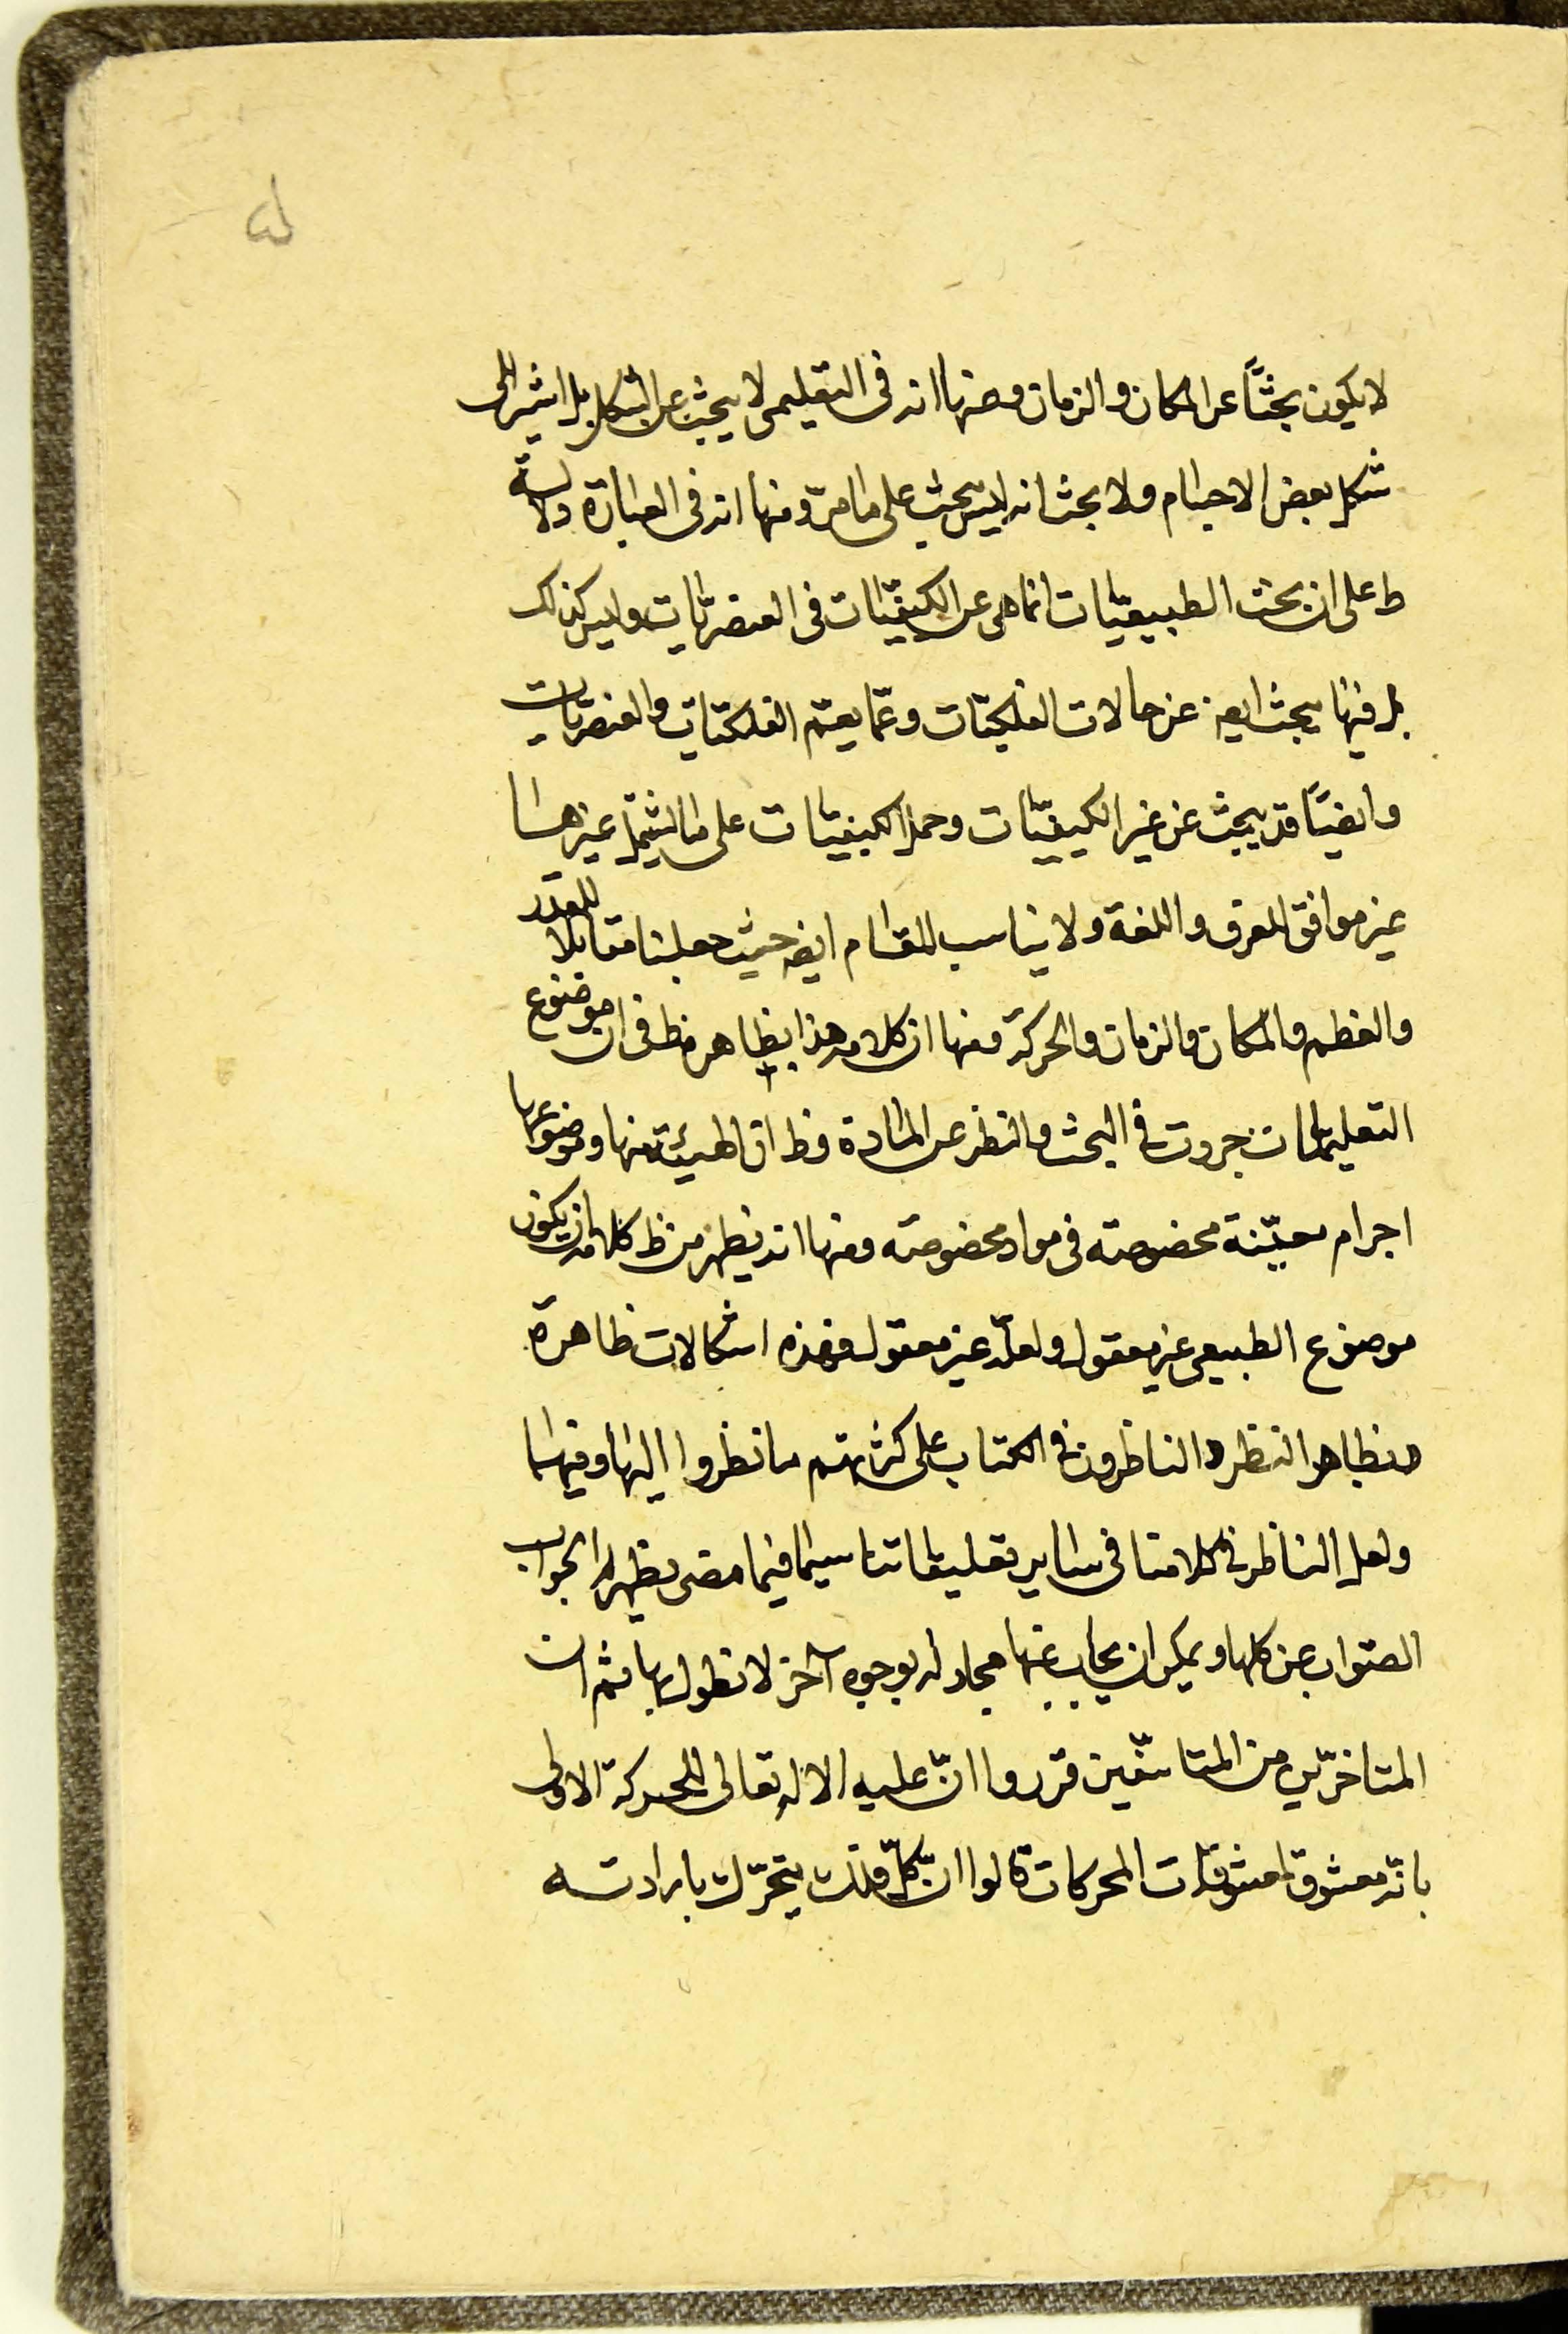 لا يكون بحثاً عن المكان والزمان ومنها انه فى التعليمى لا يبحث عن الشكل بل اشير الى
شكل بعض الاجسام ولا بحث انه ليس بحث على ما مرّ ومنها انه فى العبارة دلالة
ط على ان بحث الطبيعيّات انما هى عن الكيفيّات فى العنصريّات وليس كذلك
بل فيها يبحث ايض عن حالات الفلكيّات وعمّا يعمّ الفلكيّات والعنصريّات
وايضاً قد يبحث عن غير الكيفيّات وحمل الكيفيّات على ما يشمل غيرها
غير موافق للعرف واللغة ولا يناسب المقام ايض حيث جعلها مقابلا للعدد
والعظم والمكان والزمان والحركة ومنها ان كلامه هذا بظاهره فى ان موضوع
التعليمات جردت فى البحث والنظر عن المادة وظ ان الهيئة منها وموضوعها
اجرام معيّنة مخصوصة فى مواد مخصوصة ومنها انه يظهر من ظ كلامه ان يكون
موضوع الطبيعى غير معقول ولعلّه غير معقول فهذه اشكالات ظاهرة
بظاهر النظر والناظرون فى الكتاب على كثرتهم ما نظروا اليها وفيها
ولعل الناظر فى كلامنا فى ساير تعليقاتنا سيما فيما مضى يظهر له الجواب
الصواب عن كلها ويمكن ان يجاب عنها مجادله بوجوه آخر لا نطول بها ثم ان
المتاخرين من قرروا انّ عليه الاله تعالى للحركة الاولى
بانّه معشوق لمعشوقات المحركات قالوا انّ كلّ فلك يتحرّك بارادته